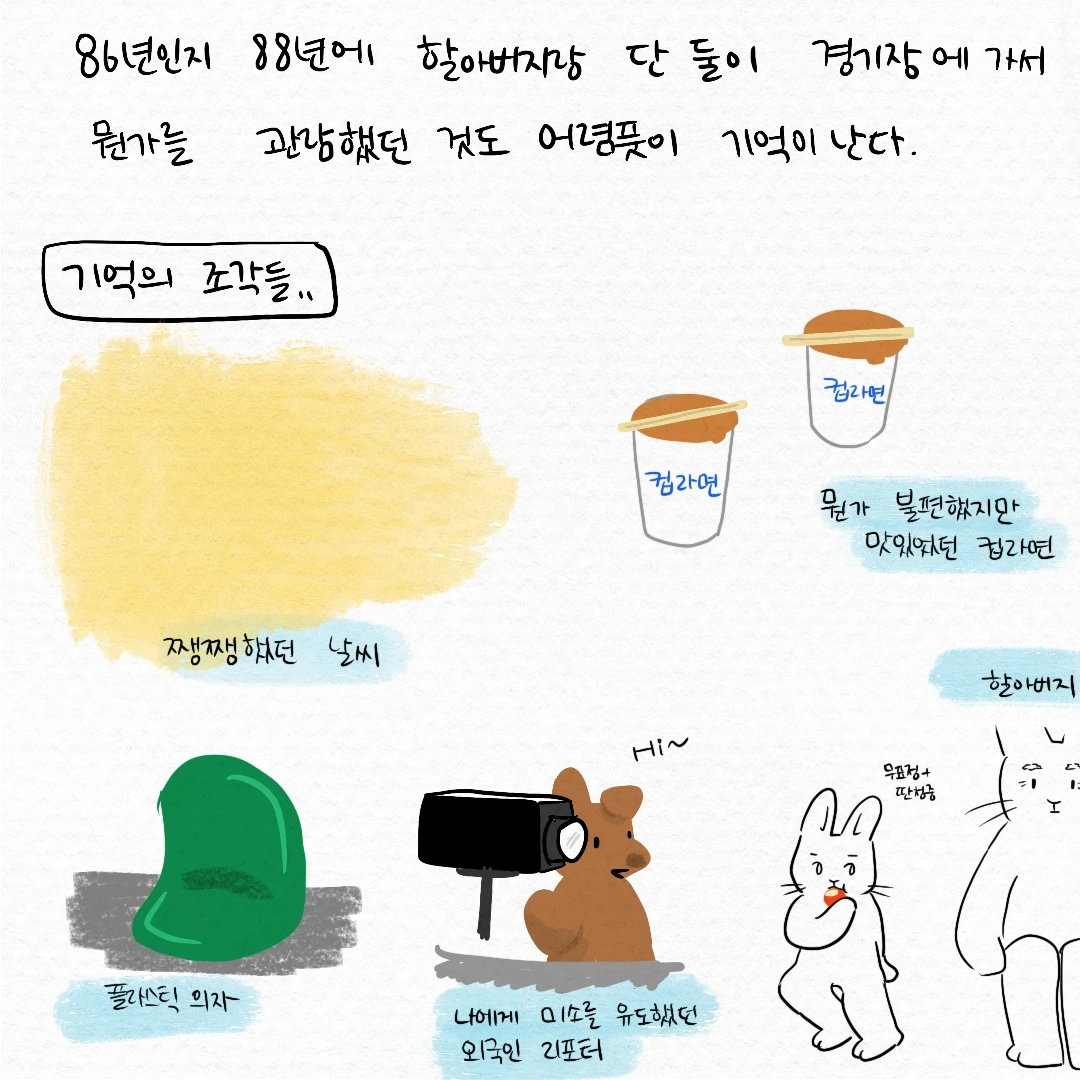 86년인지 88년에 할아버지랑 단 둘이 경기장에 가서
뭔가를 관람했던 것도 어렴풋이 기억이 난다.
기억의 조각들..
컵라면
컵라면
뭔가 불편했지만
맛있었던 컵라면
쨍쨍했던 날씨
할아버지
Hi~
무표정+
딴청중
플라스틱 의자
나에게 미소를 유도했던
외국인 리포터